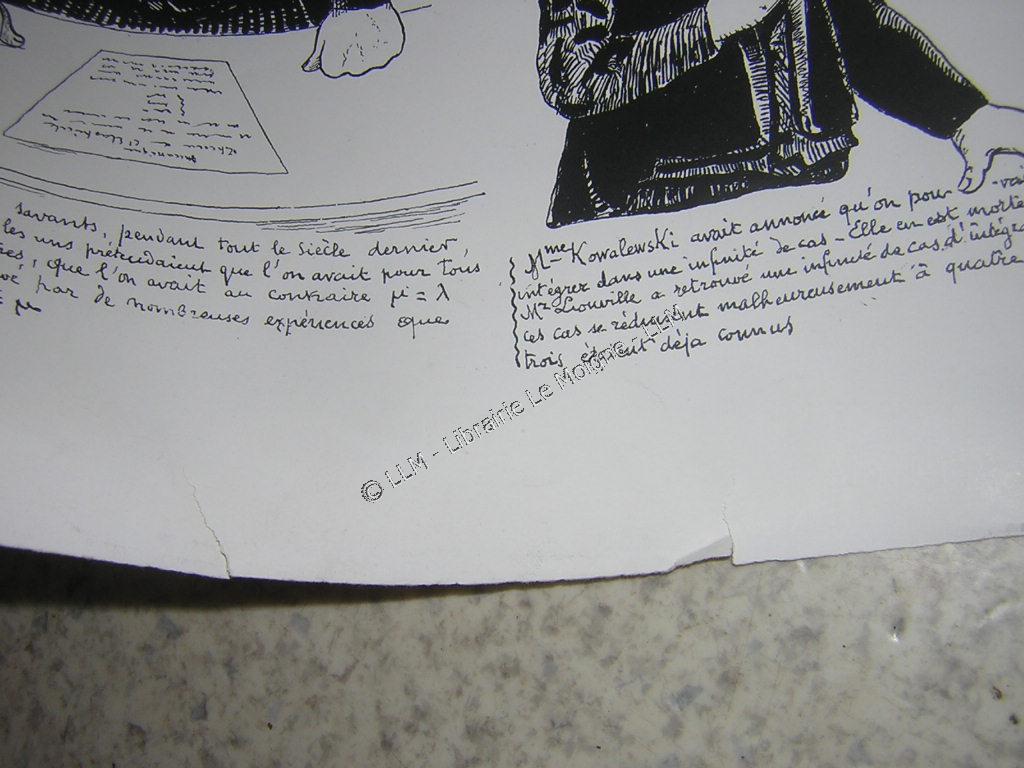 savants, pendant tout le Siècle dernier,
les uns prétendaient que l'on avait pour tous
que l'on avait au contraire μ = λ
par de nombreuses expériences que
μ
Mme Kowalewski avait annoncé qu'on pour-
intégrer dans une infinité de cas - Elle en est morte
Mr Liouville a retrouvé une infinité de cas d'intégra
ces cas se réduisent malheureusement à quatre
trois étaient déja connus
© LLM - Librairie Le Moigne - LLM